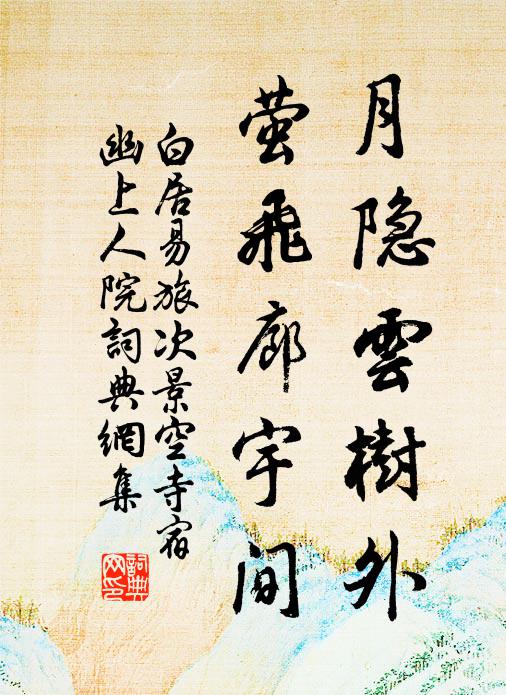 月隐雲樹外
萤飛廊宇間
白居易旅次景空寺宿
幽上人院詞典網集
詞典